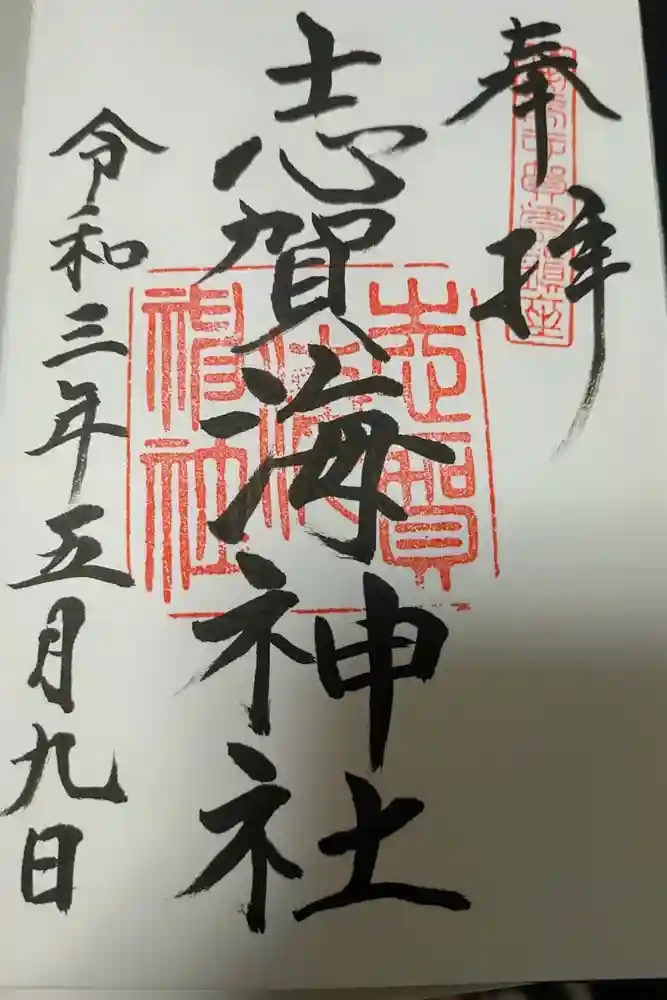 奉拝
志賀海神社
令和三年五月九日
志賀
海
神社